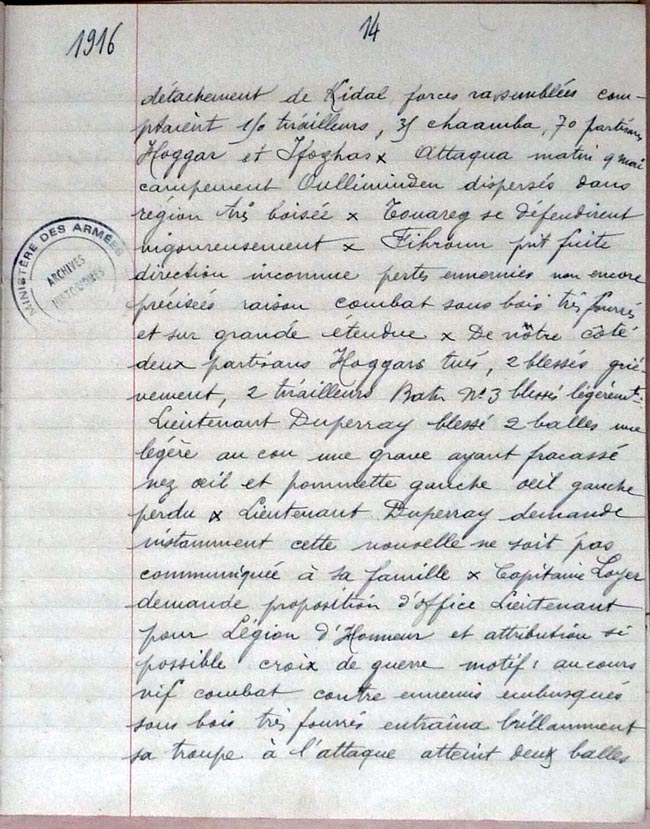 1916
14
détachement de Kidal forces rassemblées com-
ptaient 150 tirailleurs, 35 chaamba, 70 partisans
Hoggar et Ifoghas x Attaqua matin 9 mai
campement Oulliminden dispersés dans
région très boisée x Touareg se défendirent
vigoureusement x Fihroun prit fuite
direction inconnue pertes ennemies non encore
précisées raison combat sous bois très fourrés
et sur grande étendue x De nôtre côté
deux partisans Hoggars tués, 2 blessés griè-
vement, 2 tirailleurs Baton N° 3 blessés légèremt.
Lieutenant Duperray blessé 2 balles une
légère au cou une grave ayant fracassé
nez œil et pommette gauche œil gauche
perdu x Lieutenant Duperray demande
instamment cette nouvelle ne soit pas
communiquée à sa famille x Capitaine Loyer
demande proposition d'office Lieutenant
pour Légion d'Honneur et attribution si
possible croix de guerre motif : au cours
vif combat contre ennemis embusqués
sous bois très fourrés entraîna brillamment
sa troupe à l'attaque atteint deux balles
MINISTÈRE DES ARMÉES
ARCHIVES
HISTORIQUES